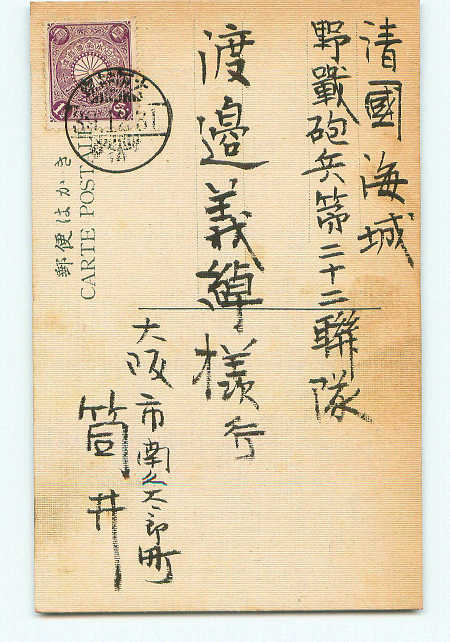 清國海城
野戰砲兵第二十二聯隊
渡邉義綽様行
大阪市南久太郎町
筒井
郵便はかき
CARTE POSTALE